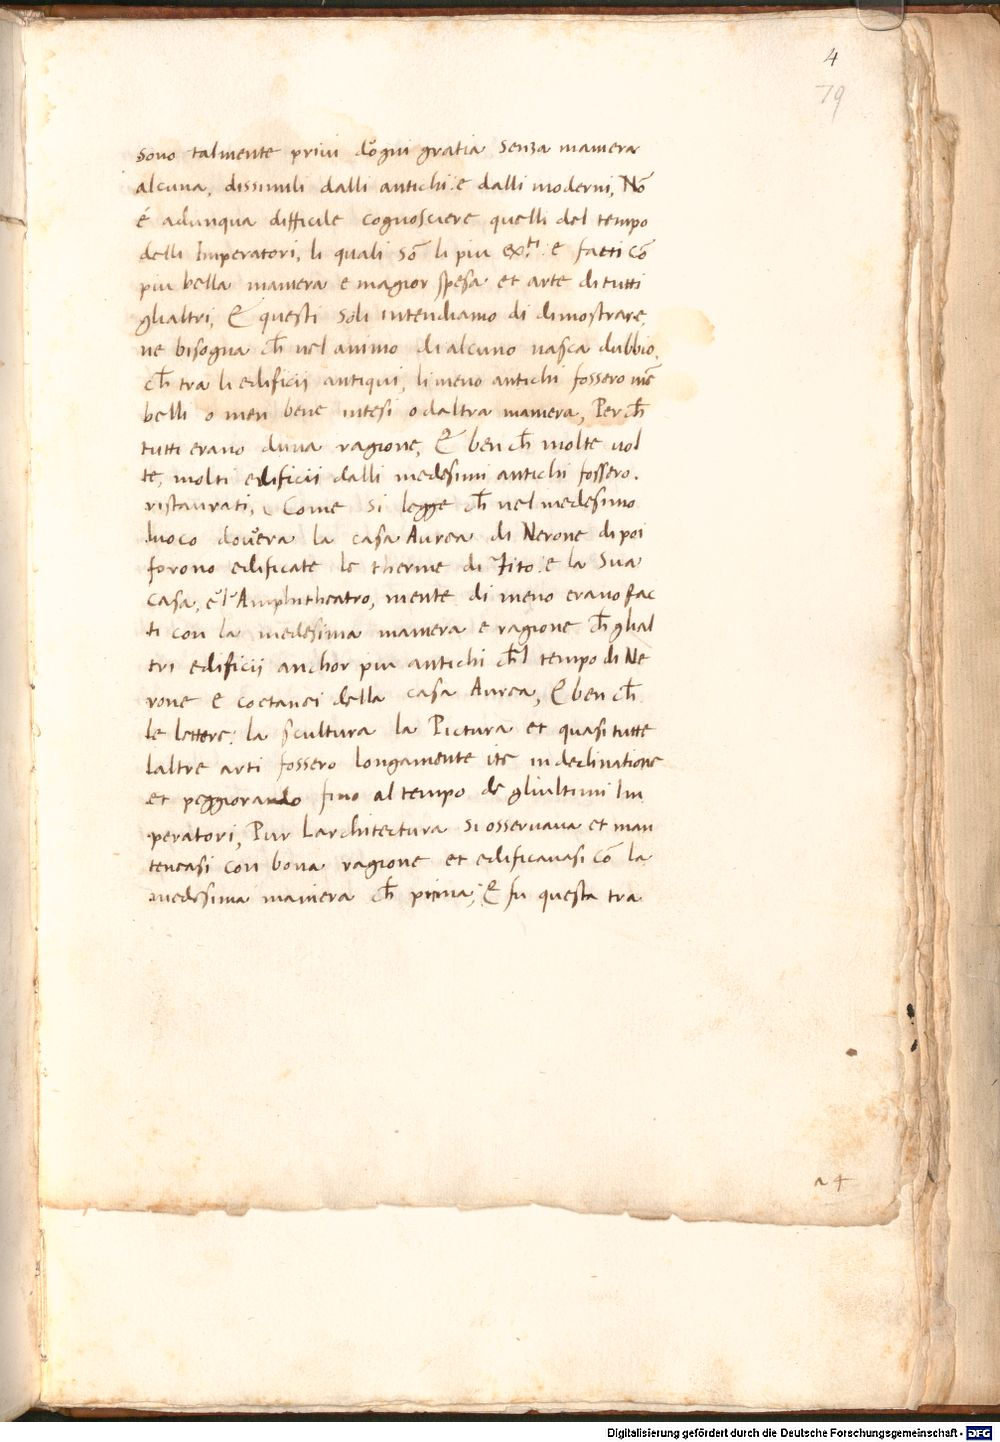 4
79
sono talmente priui d'ogni gratia senza maniera
alcuna, dissimili dalli antichi: e dalli moderni, Nō
é adunqua difficile cognosciere quelli del tempo
delli Imperatori, li quali sō li piu ex.ti: e facti cō
piu bella maniera e magior spesa et arte di tutti
glialtri, & questi soli intendiamo di dimostrare,
ne bisogna ch̄ nel animo di alcuno nasca dubbio,
ch̄ tra li edificii antiqui, li meno antichi fossero mē
belli o men bene intesi o daltra maniera, Perch̄
tutti erano duna ragione, & ben ch̄ molte uol
te, molti edificii dalli medesimi antichi fossero.
ristaurati, Come si legge ch̄ nel medesimo
luoco dou'era la casa Aurea di Nerone dipoi
forono edificate le therme di Tito: e la sua
casa, e'l'Amphitheatro, niente di meno erano fac
ti con la medesima maniera e ragione ch̄ glial
tri edificii anchor piu antichi ch̄'l tempo di Ne
rone e coetanei della casa Aurea, & ben ch̄
le lettere: la scultura la Pictura et quasi tutte
laltre arti fossero longamente ite in declinatione
et peggiorando fino al tempo de gliultimi Im
peratori, Pur Larchitectura si osseruaua et man
teneasi con bona ragione et edificauasi cō la
medesima maniera ch̄ prima; & fu questa tra
a 4
Digitalisierung gefördert durch die Deutsche Forschungsgemeinschaft - DFG